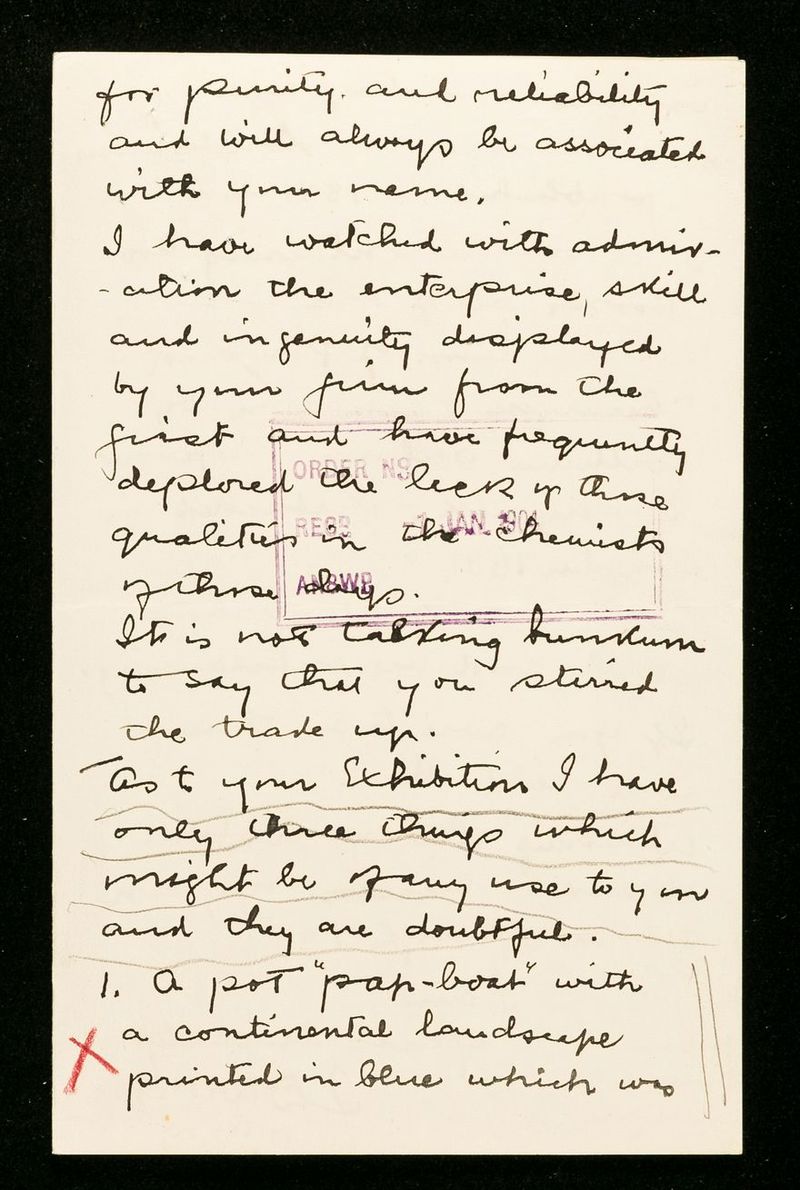 for purity. and reliability
and will always be associated
with your name.
I have watched with admir-
-ation the enterprise, skill
and ingenuity displayed
by your firm from the
first and have frequently
ORDER NO
deplored the lack of those
REGR -1 JAN. 1904
qualities in the chemists
ANSWD
of those days.
It is not talking bunkum
to say that you stirred
the trade up.
As to your Exhibition I have
only three things which
might be of any use to you
and they are doubtful.
1. A pot "pap-boat" with
a continental landscape
printed in blue which was